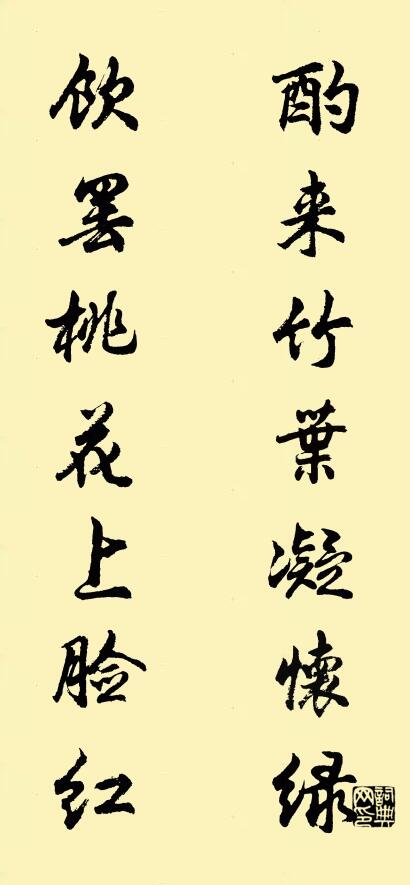 酌来竹葉凝懷绿
飲罢桃花上脸红
詞典网印